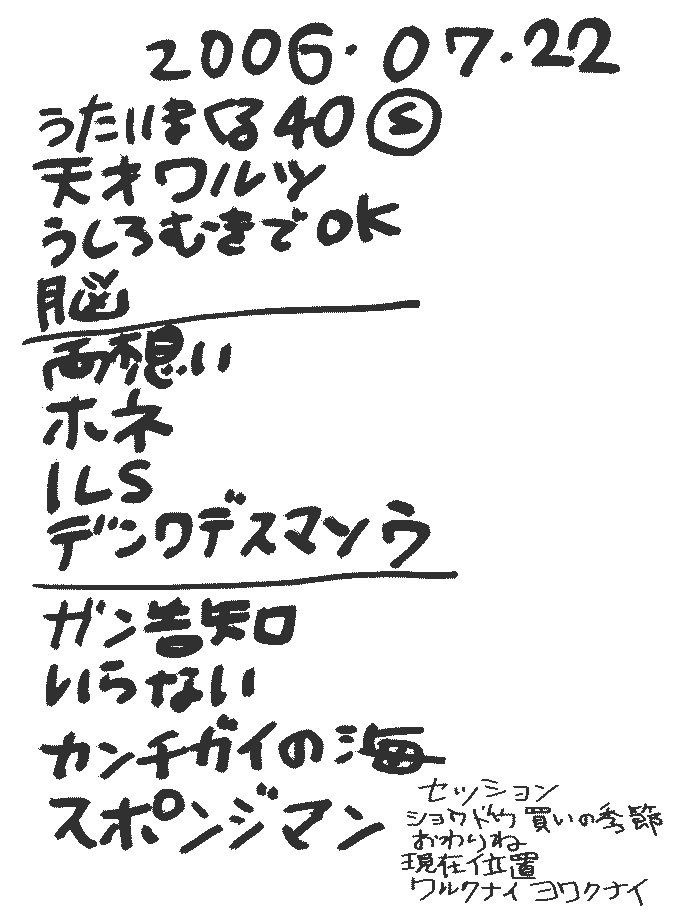 2006.07.22
うたいまくる40 Ⓢ
天才ワルツ
うしろむきでOK
脳
両想い
ホネ
ILS
デンワデスマンウ
ガン告知
いらない
カンチガイの海
スポンジマン
セッション
ショウドウ買いの季節
おわりね
現在位置
ワルクナイ ヨワクナイ